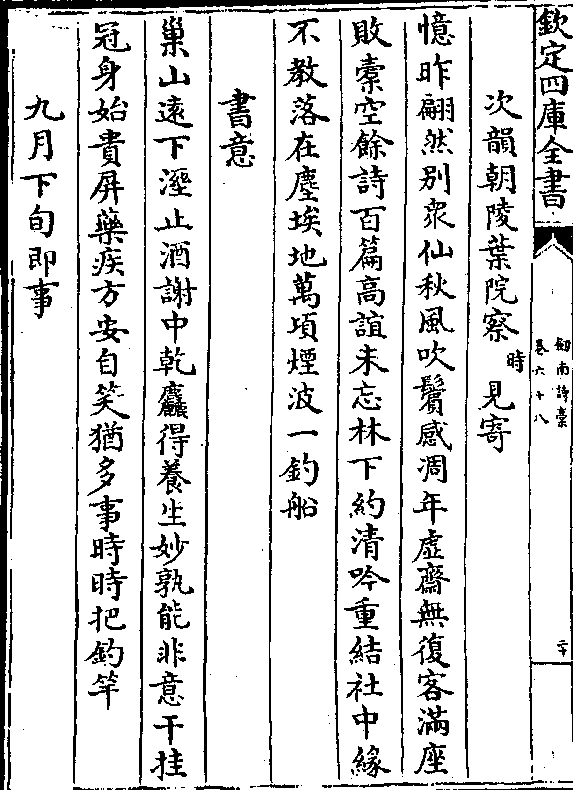 欽定四庫全書
劒南詩槀
卷六十八
二十
次韻朝陵葉院察時見寄
憶昨翩然别衆仙秋風吹鬢感凋年虚齋無復客滿座
敗槖空餘詩百篇高誼未忘林下約清吟重結社中緣
不教落在塵埃地萬項煙波一釣船
書意
巢山遠下溼止酒謝中乾麤得養生妙孰能非意干挂
冠身始貴屏藥疾方安自笑猶多事時時把釣竿
九月下旬即事